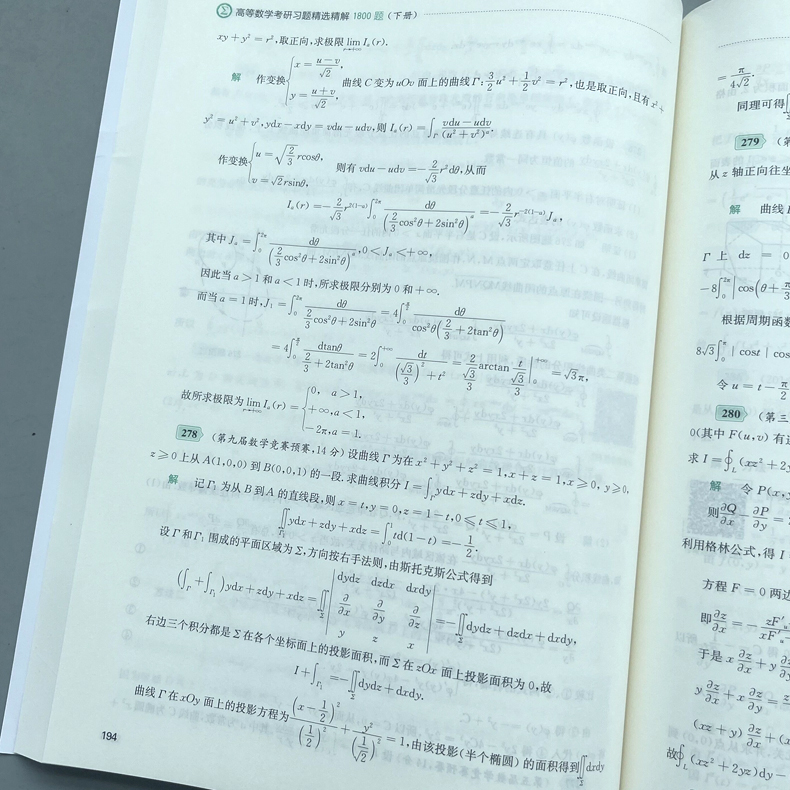 高等数学考研习题精选精解1800题(下册)
xy+y²=r²,取正向,求极限 lim_{r→+∞} I_a(r).
解 作变换{x=(u-v)/√2, y=(u+v)/√2, 曲线C变为uOv面上的曲线Γ:3/2u²+1/2v²=r²,也是取正向,且有x²+
y²=u²+v²,ydx-xdy=vdu-udv,则I_a(r)=∫_Γ (vdu-udv)/(u²+v²)^a.
作变换{u=√(2/3)rcosθ, v=√2rsinθ, 则有vdu-udv=-2/√3 r²dθ,从而
I_a(r)=-2/√3 r^{2(1-a)}∫_0^{2π} dθ/(2/3cos²θ+2sin²θ)^a=-2/√3 r^{-2(1-a)}J_a,
其中J_a=∫_0^{2π} dθ/(2/3cos²θ+2sin²θ)^a,0<J_a<+∞,
因此当a>1和a<1时,所求极限分别为0和+∞.
而当a=1时,J₁=∫_0^{2π} dθ/(2/3cos²θ+2sin²θ)=4∫_0^{π/2} dθ/(cos²θ(2/3+2tan²θ))
=4∫_0^{π/2} dtanθ/(2/3+2tan²θ)=2∫_0^{+∞} dt/((√3/3)²+t²)=2/(√3/3) arctan t/(√3/3)|_0^{+∞}=√3π,
故所求极限为lim_{r→+∞} I_a(r)={0, a>1, +∞,a<1, -2π,a=1.
278 (第九届数学竞赛预赛,14分)设曲线Γ为在x²+y²+z²=1,x+z=1,x≥0,y≥0,
z≥0上从A(1,0,0)到B(0,0,1)的一段.求曲线积分I=∫_Γ ydx+zdy+xdz.
解 记Γ₁为从B到A的直线段,则x=t,y=0,z=1-t,0≤t≤1,
∬_{Γ₁} ydx+zdy+xdz=∫_0^1 td(1-t)=-1/2.
设Γ和Γ₁围成的平面区域为Σ,方向按右手法则,由斯托克斯公式得到
(∫_Γ+∫_{Γ₁})ydx+zdy+xdz=∬_Σ |dydz dzdx dxdy; ∂/∂x ∂/∂y ∂/∂z; y z x|=-∬_Σ dydz+dzdx+dxdy,
右边三个积分都是Σ在各个坐标面上的投影面积,而Σ在zOx面上投影面积为0,故
I+∫_{Γ₁}=-∬_Σ dydz+dxdy.
曲线Γ在xOy面上的投影方程为(x-1/2)²/(1/2)²+y²/(1/√2)²=1,由该投影(半个椭圆)的面积得到∬_Σ dxdy
194
=π/(4√2).
同理可得
279 (第
从z轴正向往坐
解 曲线
Γ上 dz = 0
-8∫_0^{2π}|cos(θ+π/3
根据周期函数
8√3∫_0^π|cost|cos
令u=t-π/2
280 (第三
0(其中F(u,v)有连
求I=∮_L(xz²+2y
解 令P(x,y
则∂Q/∂x-∂P/∂y=2
利用格林公式,得I
方程F=0两边
即∂z/∂x=-zF′_u/xF′_u
于是x∂z/∂x+y∂z
y∂z/∂x+x∂z/∂y=z
(xz+y)∂z/∂x+(x
故∮_L(xz²+2yz)dy-